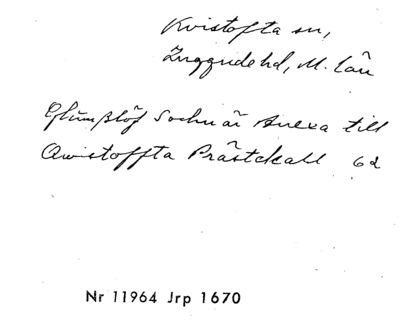 Kvistofta sn,
Luggude hd, M. län
Glumßlöf Sochn är Anexa till
Qwistoffta Prästekall 6d
Nr 11964 Jrp 1670